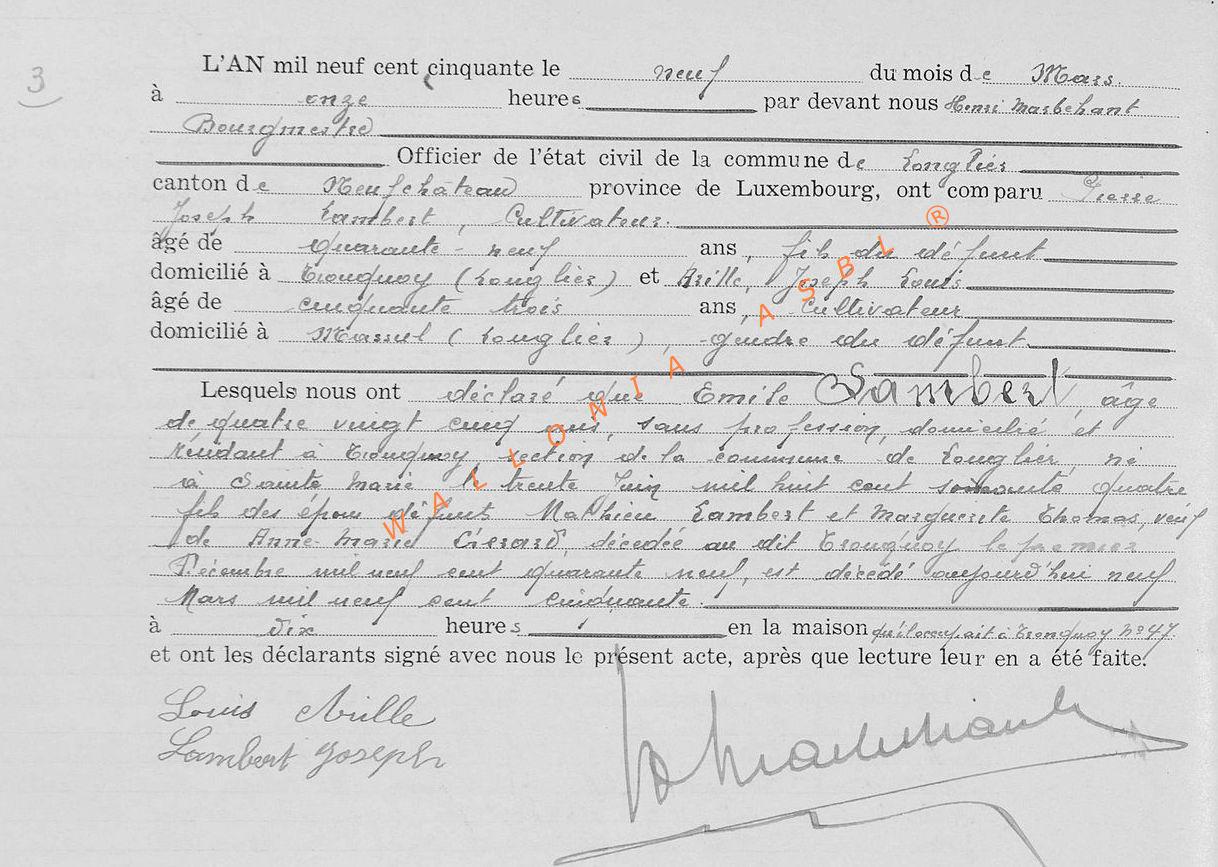 3
L'AN mil neuf cent cinquante le neuf du mois de Mars.
à onze heures par devant nous Henri Marbehant
Bourgmestre
Officier de l'état civil de la commune de Longlier
canton de Neufchâteau province de Luxembourg, ont comparu Pierre
Joseph Lambert, Cultivateur.
âgé de quarante-neuf ans, fils du défunt
domicilié à Tronquoy (Longlier) et Arille, Joseph Louis
âgé de cinquante trois ans, Cultivateur
domicilié à Massul (Longlier), gendre du défunt.
Lesquels nous ont déclaré que Emile Lambert, âgé
de quatre vingt cinq ans, sans profession, domicilié et
résidant à Tronquoy, section de la commune de Longlier, né
à Sainte Marie le trente Juin mil huit cent soixante quatre
fils des époux défunts Mathieu Lambert et Marguerite Thomas, veuf
de Anne-Marie Gérard, décédée au dit Tronquoy le premier
Décembre mil neuf cent quarante neuf, est décédé aujourd'hui neuf
Mars mil neuf cent cinquante.
à dix heures en la maison qu'il occupait à Tronquoy n° 47.
et ont les déclarants signé avec nous le présent acte, après que lecture leur en a été faite.
Louis Arille
Lambert Joseph
H Marbehant
WALLONIA ASBL ®